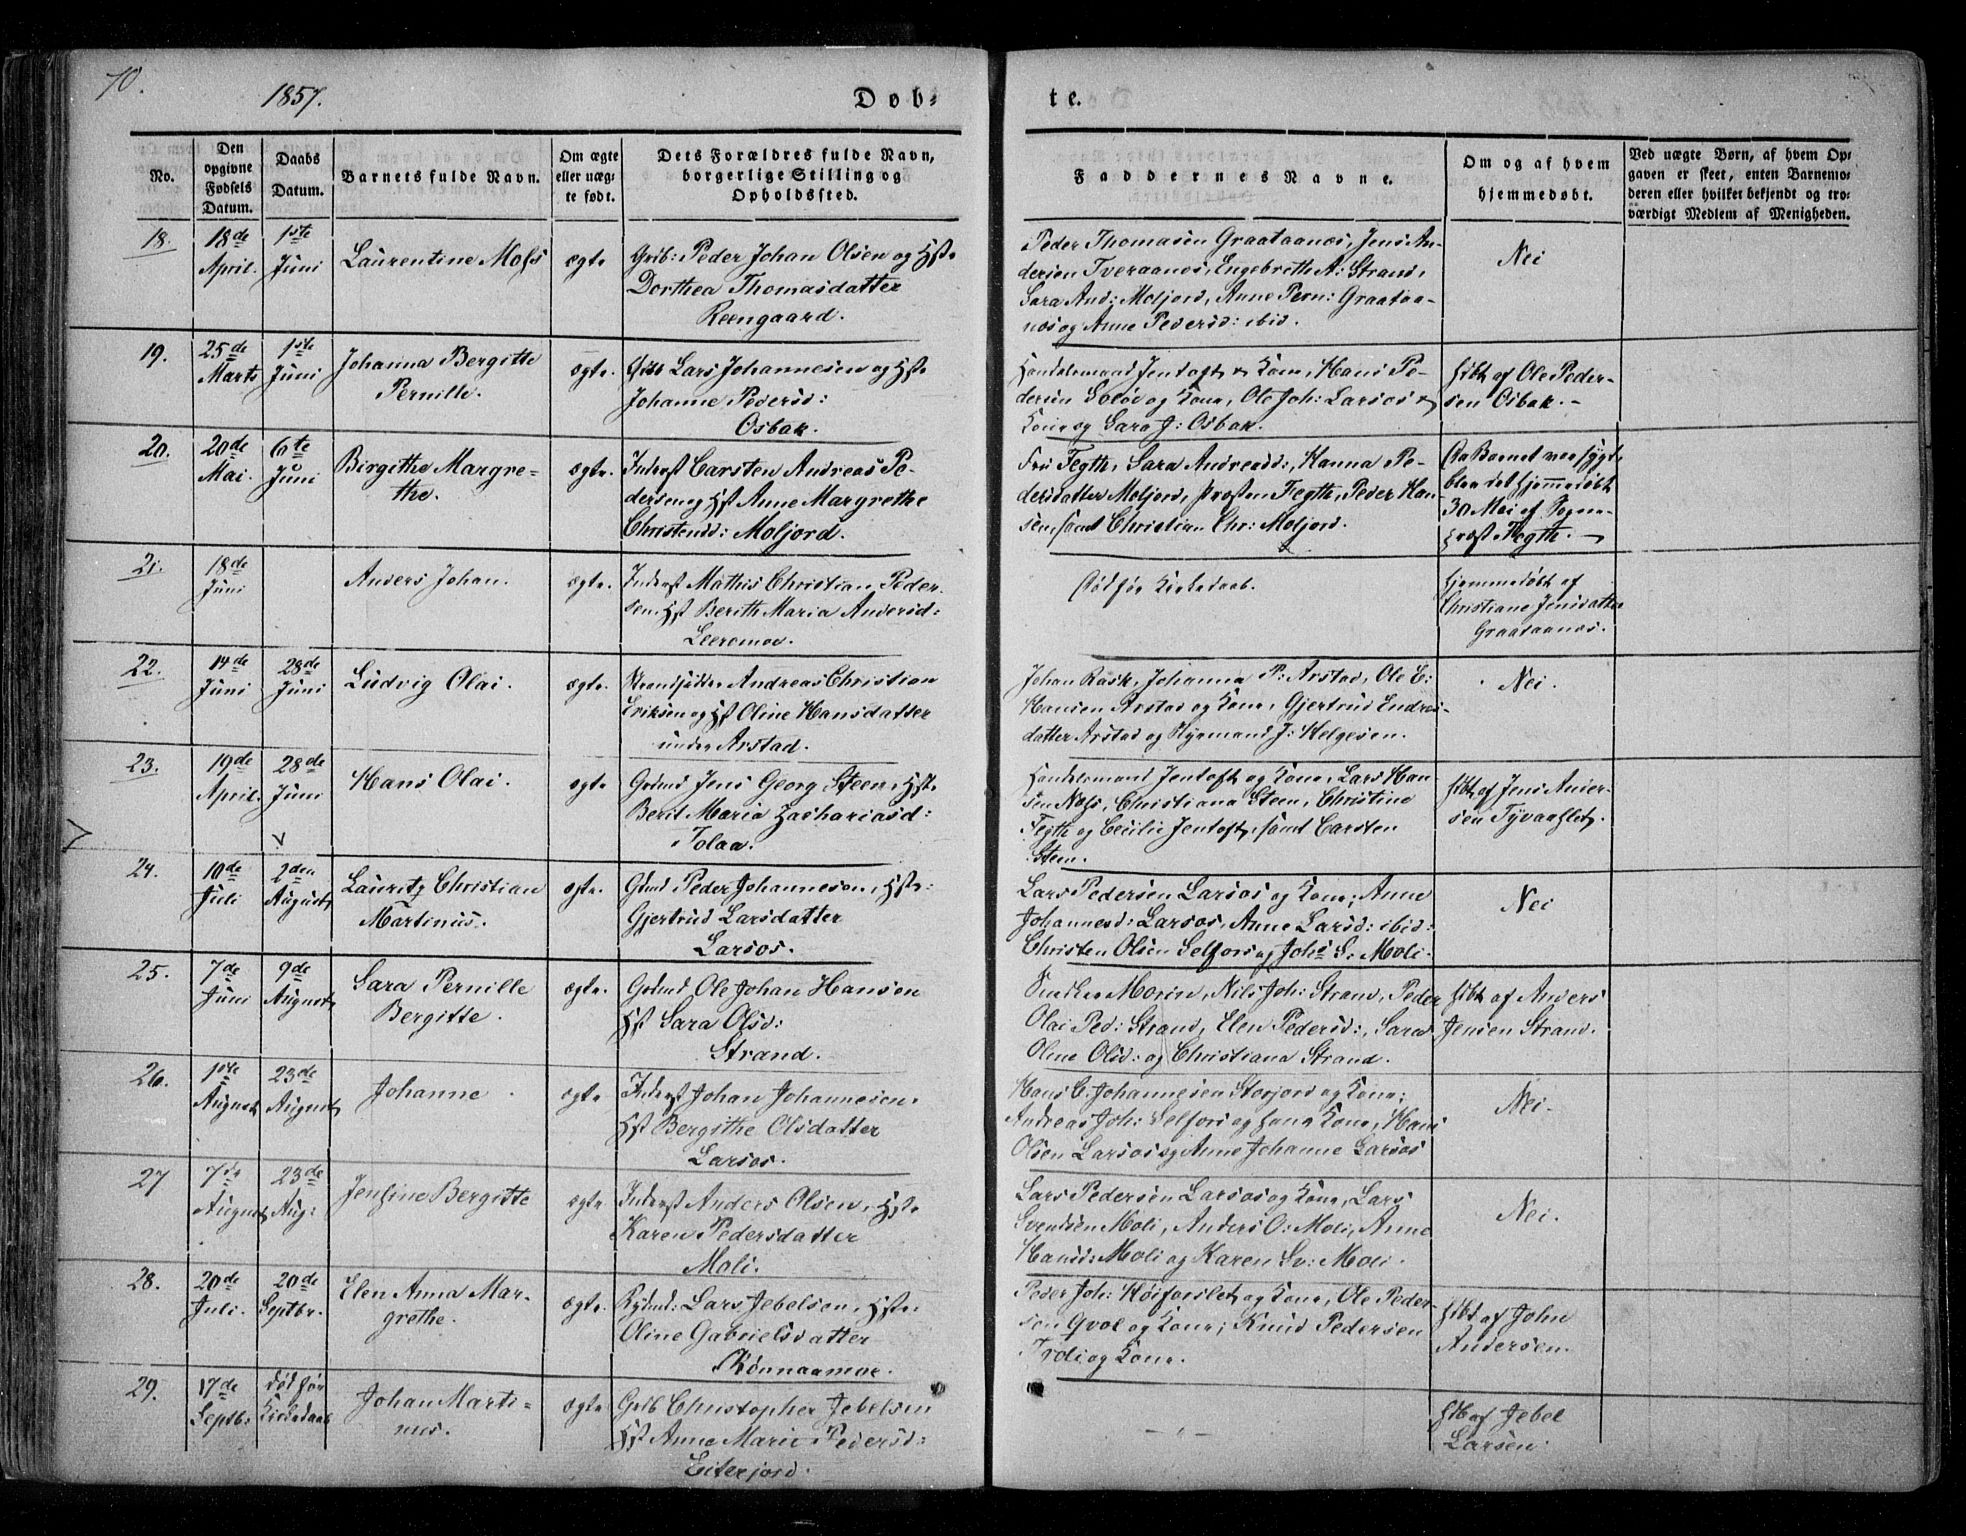 70.
1857.
Døb-
te.
No.
Den
opgivne
Fødsels
Datum.
Daabs
Datum.
Barnets fulde Navn.
Om ægte
eller uæg-
te født.
Dets Forældres fulde Navn,
borgerlige Stilling og
Opholdssted.
Faddernes Navne.
Om og af hvem
hjemmedøbt.
Ved uægte Børn, af hvem Op-
gaven er skeet, enten Barnemo-
deren eller hvilket bekjendt og tro-
værdigt Medlem af Menigheden.
18.
18de
April.
1ste
Juni
Laurentine Mohs
ægte
Grb: Peder Johan Olsen og Hst.
Dorthea Thomasdatter
Reengaard.
Peder Thomasen Graataanes, Jens An-
dersen Tveraanes, Engebreth A: Strand,
Sara And: Moljord, Anne Pern: Graataa-
nes og Anne Pedersd: ibid.
Nei
19.
25de
Marts
1ste
Juni
Johanna Bergitte
Pernille.
ægte.
Lars Johannesen og Hst.
Johanne Pedersd:
Osbak.
Handelsmand Jentoft & Kone, Hans Pe-
dersen Soløe og Kone, Ole Joh: Larsos &
Kone og Sara J: Osbak.
Hdbt af Ole Peder-
sen Osbak.-
20.
20de
Mai.
6te
Juni
Birgithe Margre-
the.
ægte.
Inderst Carsten Andreas Pe-
dersen og Hst Anne Margrethe
Christensd: Moljord.
Fru Fegth, Sara Andreasd:, Hanna Pe-
dersdatter Moljord, Provsten Fegth, Peder Han-
sen, samt Christian Chr: Moljord.
Da Barnet var sygt,
blev det hjemmedøbt
30 Mai af Sogne-
prest Fegth.-
21.
18de
Juni
Anders Johan.
ægte.
Inderst Mathis Christian Peder-
sen, Hst Berith Maria Andersd:
Leeremoe.
Død før Kirkedaab.
Hjemmedøbt af
Christiane Jensdatter
Graataanes.
22.
14de
Juni
28de
Juni
Ludvig Olai.
ægte.
Strandsidder Andreas Christian
Eriksen og Hst Oline Hansdatter
under Arstad.
Johan Rask, Johanna P: Arstad, Ole E:
Hansen Arstad og Kone, Gjertrud Endres-
datter Arstad og J: Helgesen.
Nei.
23.
19de
April.
28de
Juni
Hans Olai.
ægte
Grdmd Jens Georg Steen, Hst.
Berit Maria Zachariasd:
Tolaa.
Handelsmand Jentoft og Kone, Lars Han-
sen Næss, Christiana Steen, Christine
Fegth og Cecilie Jentoft, samt Carsten
Steen.
Hdbt af Jens Ander-
sen Tyvaaflet.
24.
10de
Juli
2den
August
Lauritz Christian
Martinus.
ægte.
Grdmd Peder Johannesen, Hst:
Gjertrud Larsdatter
Larsos.
Lars Pedersen Larsos og Kone; Anne
Johannesd: Larsos, Anne Larsd: ibid:
Christen Olsen Selfors og Johs S. Moli.
Nei
25.
7de
Juni
9de
August
Sara Pernille
Bergitte.
ægte.
Grdmd Ole Johan Hansen
Hst Sara Olsd:
Strand.
Morin, Nils Joh: Strand, Peder
Olai Ped: Strand, Elen Pedersd:, Sara
Oline Olsd: og Christiana Strand.
Hdbt af Anders
Jensen Strand.
26.
1ste
August
23de
August
Johanne
ægte
Inderst Johan Johannesen,
Hst Bergithe Olsdatter
Larsos.
Hans C. Johannesen Storjord og Kone;
Andreas Joh: Selfors og hans Kone, Hans
Olsen Larsos og Anne Johanne Larsos
Nei.
27
7de
August
23de
Aug:
Jensine Bergitte
ægte
Inderst Anders Olsen, Hst.
Karen Pedersdatter
Moli.
Lars Pedersen Larsos og Kone, Lars
Svendsen Moli, Anders O: Moli, Anne
Hansd: Moli og Karen Sv: Moli.
Nei.
28.
20de
Juli.
20de
Septbr.
Elen Anna Mar-
grethe.
ægte.
Rydmd: Lars Jebelsen, Hst:
Oline Gabrielsdatter
Rønnaamoe.
Peder Joh: Høiforslet og Kone, Ole Peder-
sen Qvol og Kone; Knud Pedersen
Troli og Kone.
Hdbt af John
Andersen.
29.
17de
Septb:
død før
Kirkedaab
Johan Marti-
nus.
ægte.
Grdb Christopher Jebelsen
Hst Anne Marie Pedersd:
Eiterjord.
- " -
Hdb af Jebel
Larsen.